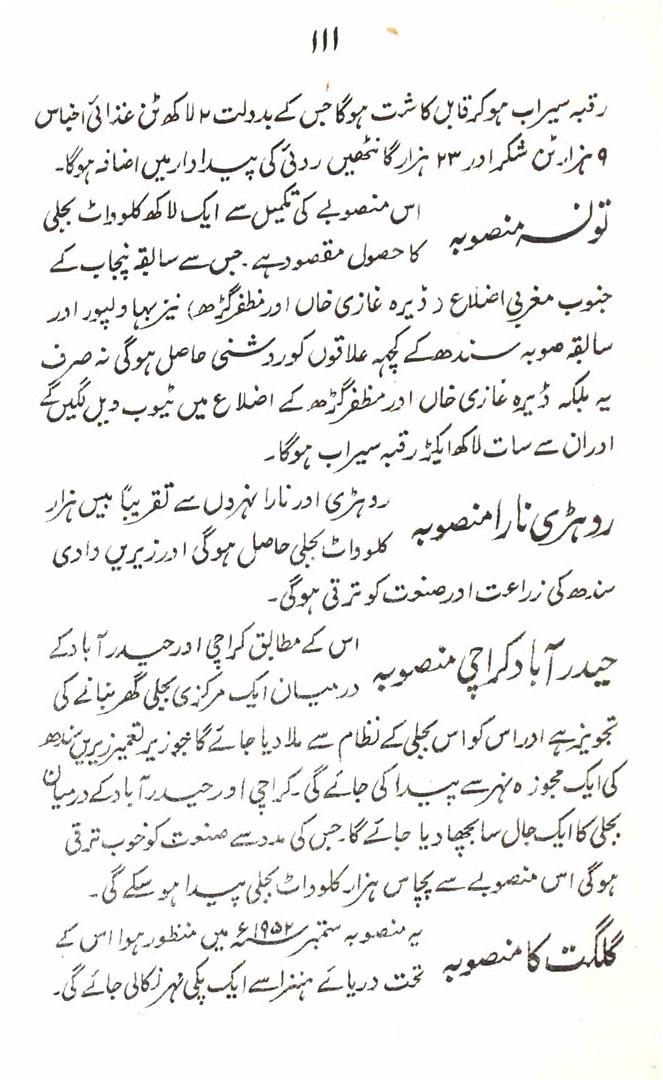 ۱۱۱
رقبہ سیراب ہو کر قابل کاشت ہوگا جس کے بدولت ۲ لاکھ ٹن غذائی اجناس
۹ ہزار ٹن شکر اور ۲۳ ہزار گانٹھیں روئی کی پیداوار میں اضافہ ہوگا۔
تونسہ منصوبہ
اس منصوبے کی تکمیل سے ایک لاکھ کلوواٹ بجلی
کا حصول مقصود ہے۔ جس سے سابقہ پنجاب کے
جنوب مغربی اضلاع (ڈیرہ غازی خاں اور مظفر گڑھ) نیز بہاولپور اور
سابقہ صوبہ سندھ کے کچھ علاقوں کو روشنی حاصل ہوگی نہ صرف
یہ بلکہ ڈیرہ غازی خاں اور مظفر گڑھ کے اضلاع میں ٹیوب ویل لگیں گے
اور ان سے سات لاکھ ایکڑ رقبہ سیراب ہوگا۔
روہڑی نارا منصوبہ
روہڑی اور نارا نہروں سے تقریباً بیس ہزار
کلوواٹ بجلی حاصل ہوگی اور زیریں وادی
سندھ کی زراعت اور صنعت کو ترقی ہوگی۔
حیدر آباد کراچی منصوبہ
اس کے مطابق کراچی اور حیدر آباد کے
درمیان ایک مرکزی بجلی گھر بنانے کی
تجویز ہے اور اس کو اس بجلی کے نظام سے ملا دیا جائے گا جو زیر تعمیر زیریں سندھ
کی ایک مجوزہ نہر سے پیدا کی جائے گی۔ کراچی اور حیدر آباد کے درمیان
بجلی کا ایک جال سا بچھا دیا جائے گا۔ جس کی مدد سے صنعت کو خوب ترقی
ہوگی اس منصوبے سے پچاس ہزار کلوواٹ بجلی پیدا ہو سکے گی۔
گلگت کا منصوبہ
یہ منصوبہ ستمبر ۱۹۵۲ء میں منظور ہوا اس کے
تحت دریائے ہنزا سے ایک پکی نہر نکالی جائے گی۔